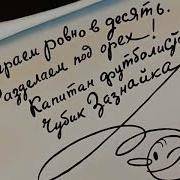 граем ровно в десять.
азделаем под орех!
Капитан футболисто
Чубик Зазнайка